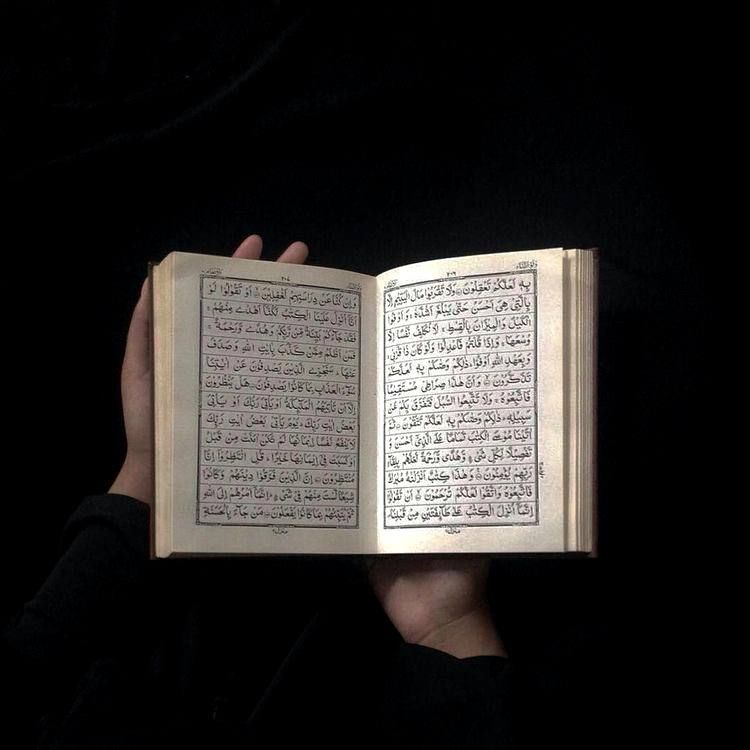 ولو اننا ٨
بِهٖ لَعَلَّكُمْ تَعْقِلُوْنَ ۝ وَلَا تَقْرَبُوْا مَالَ الْيَتِيْمِ اِلَّا
بِالَّتِيْ هِيَ اَحْسَنُ حَتّٰى يَبْلُغَ اَشُدَّهٗ ۚ وَاَوْفُوا
الْكَيْلَ وَالْمِيْزَانَ بِالْقِسْطِ ۚ لَا نُكَلِّفُ نَفْسًا اِلَّا
وُسْعَهَا ۚ وَاِذَا قُلْتُمْ فَاعْدِلُوْا وَلَوْ كَانَ ذَا قُرْبٰى ۚ
وَبِعَهْدِ اللّٰهِ اَوْفُوْا ؕ ذٰلِكُمْ وَصّٰىكُمْ بِهٖ لَعَلَّكُمْ
تَذَكَّرُوْنَ ۝ وَاَنَّ هٰذَا صِرَاطِيْ مُسْتَقِيْمًا
فَاتَّبِعُوْهُ ۚ وَلَا تَتَّبِعُوا السُّبُلَ فَتَفَرَّقَ بِكُمْ عَنْ
سَبِيْلِهٖ ؕ ذٰلِكُمْ وَصّٰىكُمْ بِهٖ لَعَلَّكُمْ تَتَّقُوْنَ ۝ ثُمَّ
اٰتَيْنَا مُوْسَى الْكِتٰبَ تَمَامًا عَلَى الَّذِيْۤ اَحْسَنَ وَ
تَفْصِيْلًا لِّكُلِّ شَيْءٍ وَّهُدًى وَّرَحْمَةً لَّعَلَّهُمْ بِلِقَآءِ
رَبِّهِمْ يُؤْمِنُوْنَ ۝ وَهٰذَا كِتٰبٌ اَنْزَلْنٰهُ مُبٰرَكٌ
فَاتَّبِعُوْهُ وَاتَّقُوْا لَعَلَّكُمْ تُرْحَمُوْنَ ۝ اَنْ تَقُوْلُوْۤا
اِنَّمَاۤ اُنْزِلَ الْكِتٰبُ عَلٰى طَآئِفَتَيْنِ مِنْ قَبْلِنَا
منزل ٢
وَاِنْ كُنَّا عَنْ دِرَاسَتِهِمْ لَغٰفِلِيْنَ ۝ اَوْ تَقُوْلُوْا لَوْ
اَنَّاۤ اُنْزِلَ عَلَيْنَا الْكِتٰبُ لَكُنَّاۤ اَهْدٰى مِنْهُمْ ۚ
فَقَدْ جَآءَكُمْ بَيِّنَةٌ مِّنْ رَّبِّكُمْ وَهُدًى وَّرَحْمَةٌ ۚ
فَمَنْ اَظْلَمُ مِمَّنْ كَذَّبَ بِاٰيٰتِ اللّٰهِ وَصَدَفَ
عَنْهَا ؕ سَنَجْزِي الَّذِيْنَ يَصْدِفُوْنَ عَنْ اٰيٰتِنَا
سُوْٓءَ الْعَذَابِ بِمَا كَانُوْا يَصْدِفُوْنَ ۝ هَلْ يَنْظُرُوْنَ
اِلَّاۤ اَنْ تَاْتِيَهُمُ الْمَلٰٓئِكَةُ اَوْ يَاْتِيَ رَبُّكَ اَوْ يَاْتِيَ
بَعْضُ اٰيٰتِ رَبِّكَ ؕ يَوْمَ يَاْتِيْ بَعْضُ اٰيٰتِ رَبِّكَ
لَا يَنْفَعُ نَفْسًا اِيْمَانُهَا لَمْ تَكُنْ اٰمَنَتْ مِنْ قَبْلُ
اَوْ كَسَبَتْ فِيْۤ اِيْمَانِهَا خَيْرًا ؕ قُلِ انْتَظِرُوْۤا اِنَّا
مُنْتَظِرُوْنَ ۝ اِنَّ الَّذِيْنَ فَرَّقُوْا دِيْنَهُمْ وَكَانُوْا
شِيَعًا لَّسْتَ مِنْهُمْ فِيْ شَيْءٍ ؕ اِنَّمَاۤ اَمْرُهُمْ اِلَى اللّٰهِ
ثُمَّ يُنَبِّئُهُمْ بِمَا كَانُوْا يَفْعَلُوْنَ ۝ مَنْ جَآءَ بِالْحَسَنَةِ
منزل ٢